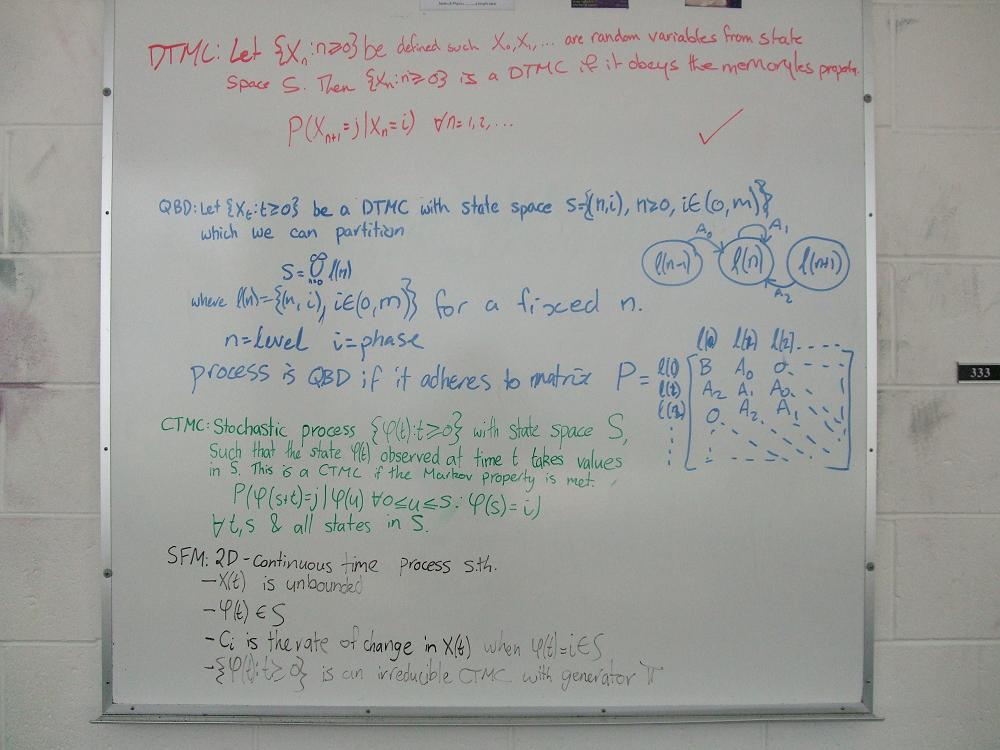 DTMC: Let {Xₙ: n≥0} be defined such X₀, X₁, ... are random variables from state
space S. Then {Xₙ: n≥0} is a DTMC if it obeys the memoryles property.
P(Xₙ₊₁=j|Xₙ=i) ∀n=1,2,...
QBD: Let {Xₜ: t≥0} be a DTMC with state space S={(n,i), n≥0, i∈(0,m)}
which we can partition
S = ∪ₙ₌₀^∞ l(n)
where l(n)={(n,i), i∈(0,m)} for a fixed n.
n=level i=phase
process is QBD if it adheres to matrix P =
A₀ A₁
l(n-1) l(n) l(n+1)
A₂
l(0) l(1) l(2) . - - - -
l(0) B A₀ 0 . - - -
l(1) A₂ A₁ A₀
0 A₂ A₁
CTMC: Stochastic process {φ(t): t≥0} with state space S,
Such that the state φ(t) observed at time t takes values
in S. This is a CTMC if the Markov property is met.
P(φ(s+t)=j|φ(u) ∀0≤u≤s: φ(s)=i)
∀t,s & all states in S.
SFM: 2D-Continuous time process s.th.
-X(t) is unbounded
-φ(t) ∈ S
-Ci is the rate of change in X(t) when φ(t)=i∈S
-{φ(t): t≥0} is an irreducible CTMC with generator T
333